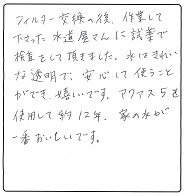 フィルター交換の後、作業して
下さった水道屋さんに試薬で
検査をして頂きました。水はきれい
な透明で、安心して使うこと
ができ、嬉しいです。アクアス5を
使用して約12年、家の水が
一番おいしいです。